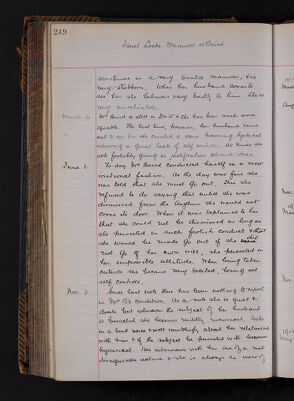 249
Janet Locke Maxwell or Baird
sometimes in a very erratic manner, & is
very stubborn. When her husband comes to
see her she behaves very badly to him. She is
very unreliable.
March 2. Mrs Baird is still in Dorm & she has been much more
equable. The last time, however, her husband came
out to see her she created a scene becoming hysterical
showing a great lack of self control. At times she
talks foolishly
June 1. To day Mrs Baird conducted herself in a most
irrational fashion. As the day was fine she
was told that she must go out. This she
refused to do saying that unless she was
dismissed from the Asylum she would not
cross its door. When it was explained to her
that she could not be dismissed as long as
she persisted in such foolish conduct & that
she would be made go out if she did
not go of her own will, she persisted in
her impossible attitude. When being taken
outside she became very excited, losing all
self control.
Nov. 2. Since last note there has been nothing to report
in Mrs B's condition. As a rule she is quiet &
docile but whenever the subject of her husband
is broached she becomes mildly maniacal. Talks
in a loud voice & will ramblingly about her relations
with him & if the subject be persisted with becomes
hysterical. Her interviews with him are of a most
disagreeable nature & she is always the worse of